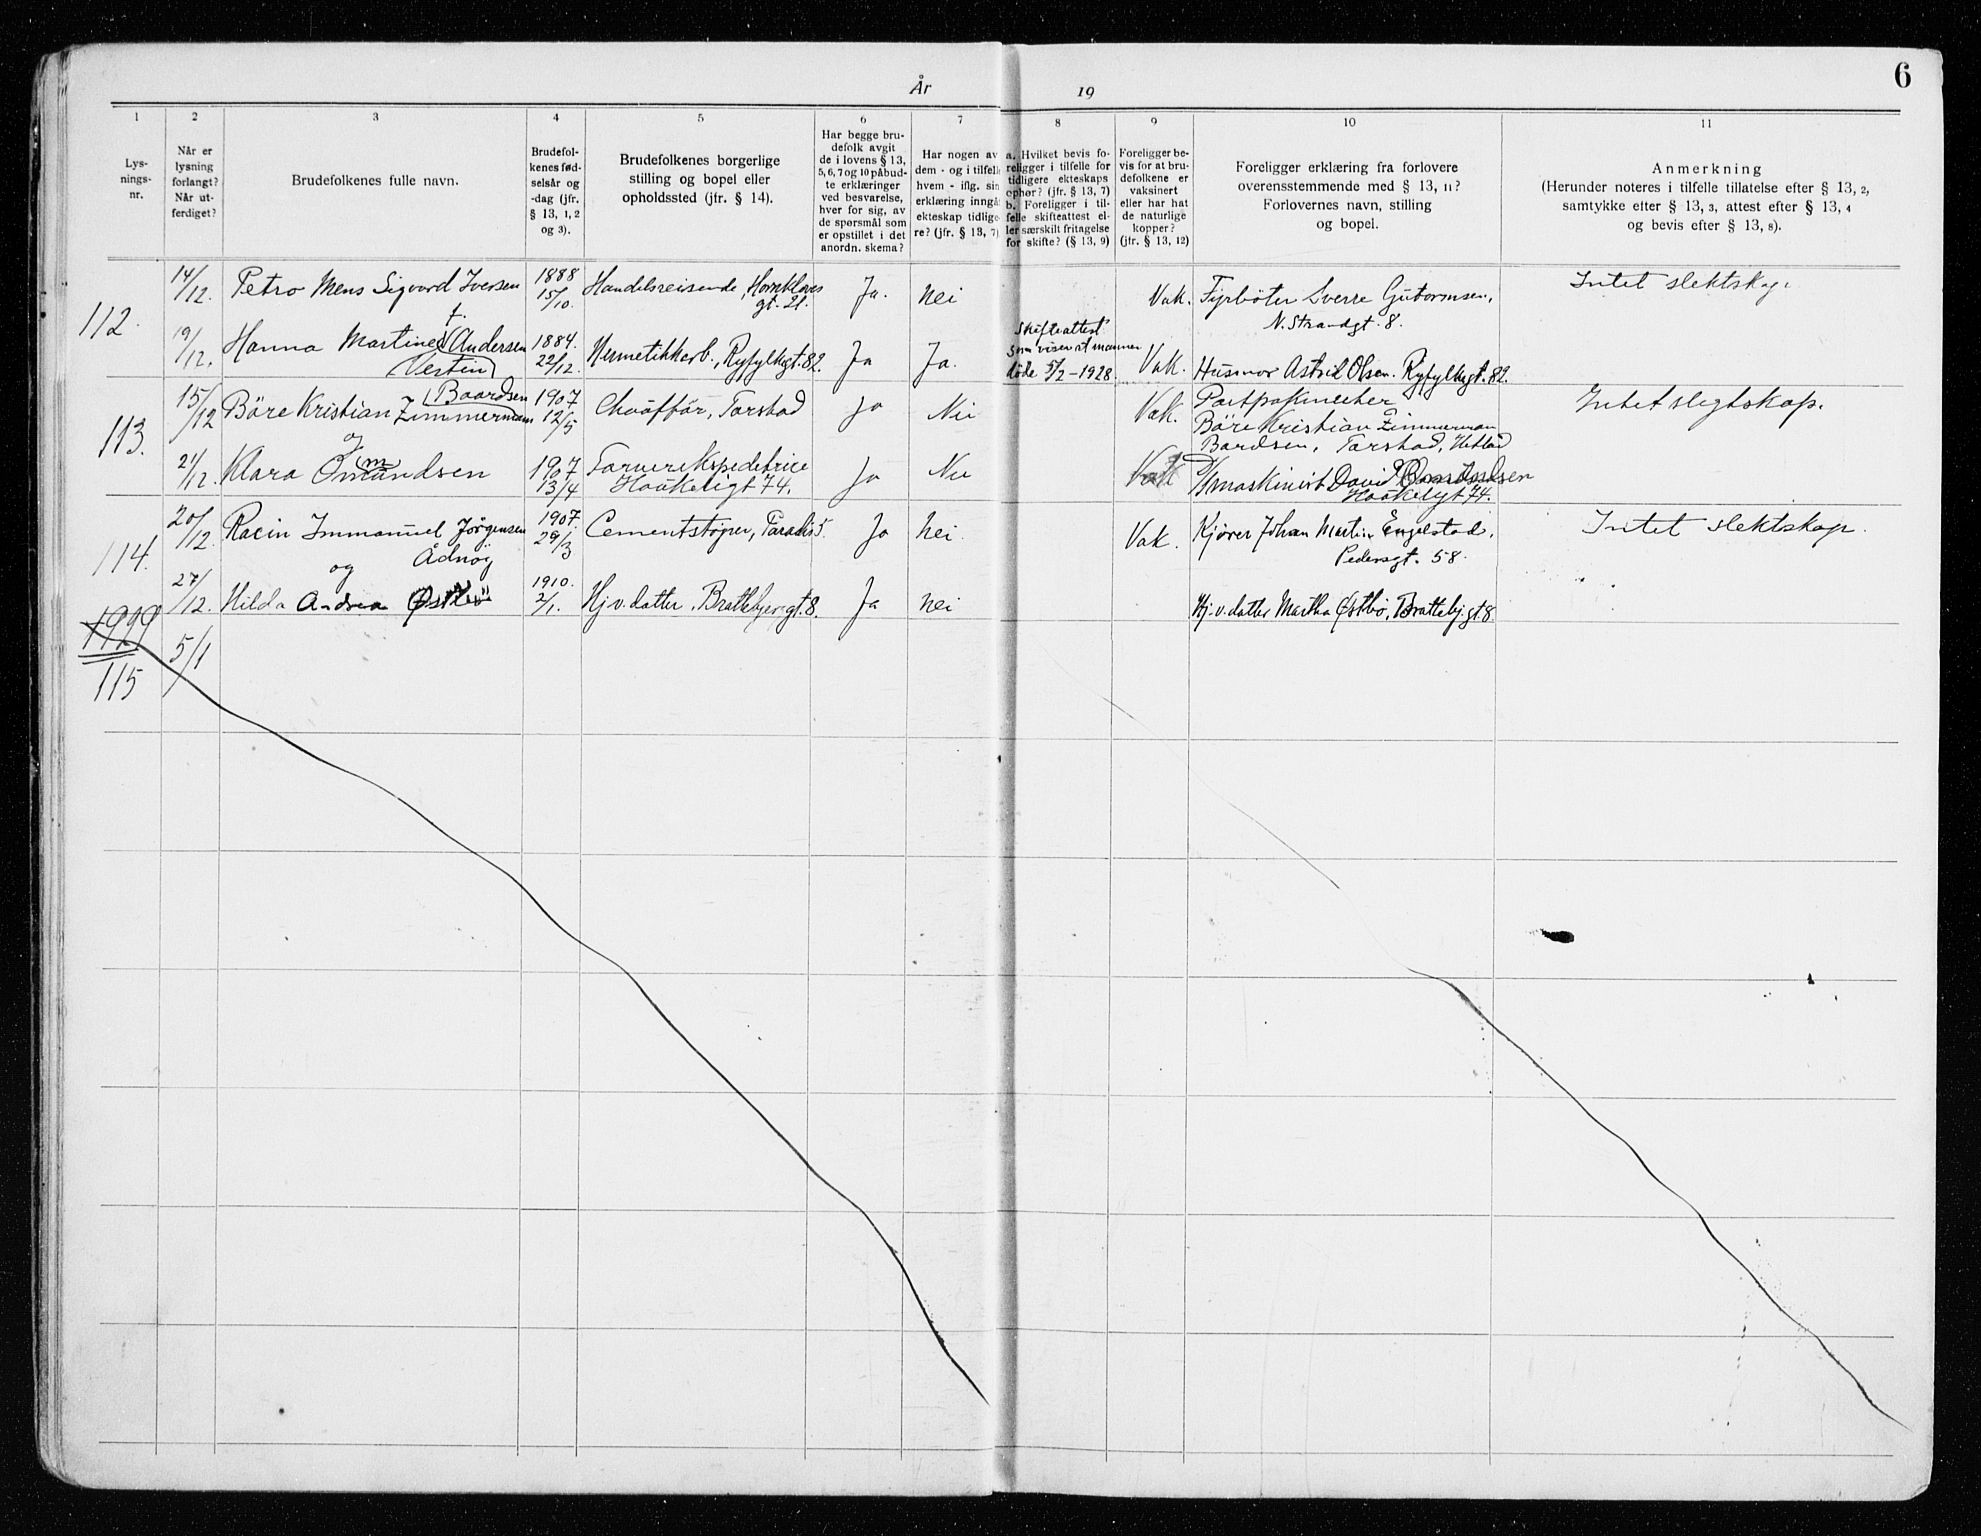 År 19
6
1
2
3
4
5
6
7
8
9
10
11
Lys-
nings-
nr.
Når er
lysning
forlangt?
Når ut-
ferdiget?
Brudefolkenes fulle navn.
Brudefol-
kenes fød-
selsår og
-dag (jfr.
§ 13, 1, 2
og 3).
Brudefolkenes borgerlige
stilling og bopel eller
opholdssted (jfr. § 14).
Har begge bru-
defolk avgit
de i lovens § 13,
5, 6, 7 og 10 påbud-
te erklæringer
ved besvarelse,
hver for sig, av
de spørsmål som
er opstillet i det
anordn. skema?
Har nogen av
dem - og i tilfelle
hvem - iflg. sin
erklæring inngå
ekteskap tidlige-
re? (jfr. § 13, 7)
a. Hvilket bevis fo-
religger i tilfelle for
tidligere ekteskaps
ophør? (jfr. § 13, 7)
b. Foreligger i til-
felle skifteattest el-
ler særskilt fritagelse
for skifte? (§ 13, 9)
Foreligger be-
vis for at bru-
defolkene er
vaksinert
eller har hat
de naturlige
kopper?
(jfr. § 13, 12)
Foreligger erklæring fra forlovere
overensstemmende med § 13, 11?
Forlovernes navn, stilling
og bopel.
Anmerkning
(Herunder noteres i tilfelle tillatelse efter § 13, 2,
samtykke efter § 13, 3, attest efter § 13, 4
og bevis efter § 13, 8).
112.
14/12. Petro Mens Sigvard Iversen 1888 15/10. Handelsreisende, Hornkloves gt. 21. Ja. Nei Vak. Fyrbøter Sverre Gutormsen, N. Strandgt. 8. Intet slektskap.
19/12. Hanna Martine Andersen f. Vestin 1884. 22/12. Hermetikkarb., Ryfylkegt. 82. Ja Ja. Skifteattest som viser at mannen døde 5/2 - 1928. Vak. Husmor Astrid Olsen. Ryfylkegt. 82.
113.
15/12 Böre Kristian Zimmermann Baardsen 1907 12/5 Chaufför, Tarstad Ja Nei Vak. Böre Kristian Zimmerman Bardsen, Tarstad, Hetland Intet slegtskap.
og
21/12. Klara Omundsen 1907 13/4 Haukeligt 74. Ja Nei Vak maskinist David Haukeligt 74.
114.
20/12. Racin Immanuel Jörgensen Ådnöy 1907. 29/3 Cementstøper, Paradis 5. Ja Nei. Vak. Kjörer Johan Martin Engelstad. Pedersgt. 58. Intet slektskap.
og
27/12. Hilda Andrea Østbø 1910. 2/1. Hj.v. datter, Brattebjergt. 8. Ja Nei Hj.v. datter Martha Østbö, Brattebj.gt. 8
1929
115 5/1